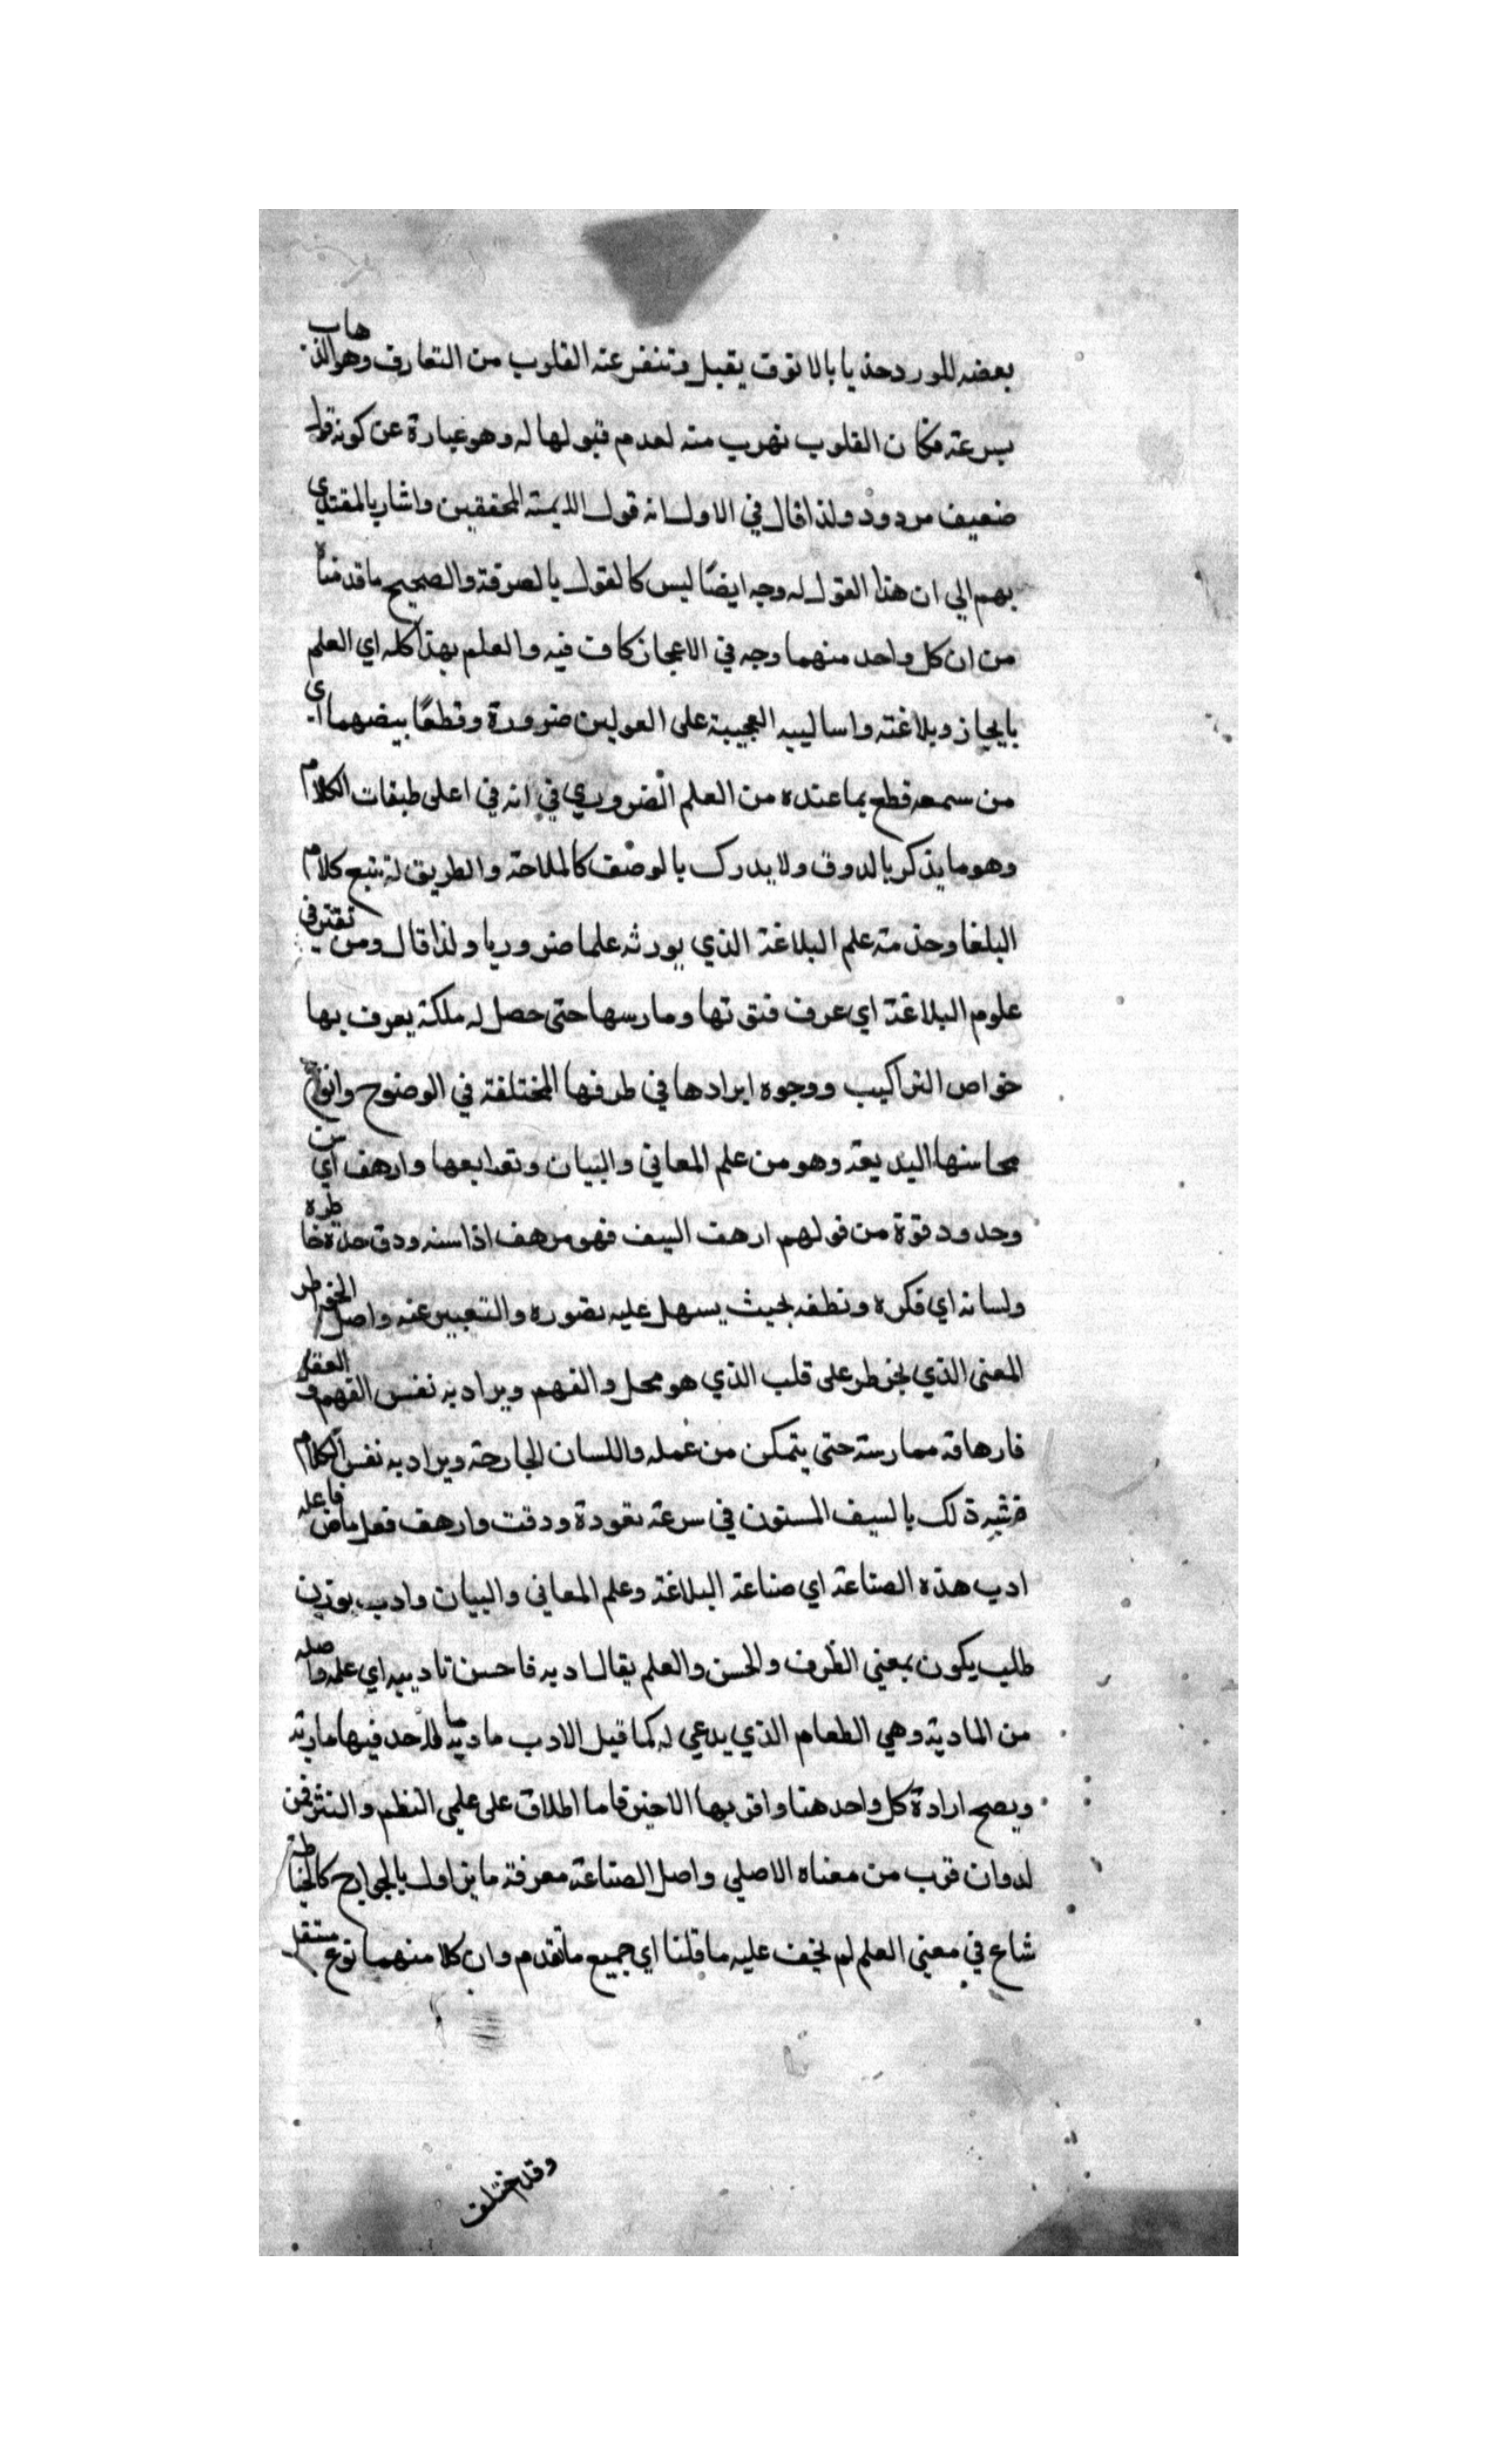 بعضه للورد حذيا بالا نوق يقبل وتنفر عنه القلوب من التعارف وهو الذهاب
بسرعة فكان القلوب تهرب منه لعدم قبولها له وهو عبارة عن كونه قول
ضعيف مردود ولذا قال في الاول انه قول الايمة المحققين واشار بالمقتدي
بهم الي ان هذا القول له وجه ايضًا ليس كالقول بالصرفة والصحيح ما قدمناه
من ان كل واحد منهما وجه في الاعجاز كاف فيه والعلم بهذا كله اي العلم
بايجاز وبلاغته واساليبه العجيبة على القولين ضرورة وقطعًا بيضهما اي
من سمعه قطع بما عنده من العلم الضروري في انه في اعلى طبقات الكلام
وهو ما يذكر بالدوق ولا يدرك بالوصف كالملاحة والطريق له تتبع كلام
البلغا وخدمة علم البلاغة الذي يورثه علما ضروريا ولذا قال ومن تفنن في
علوم البلاغة اي عرف فنونها ومارسها حتى حصل له ملكة يعرف بها
خواص التراكيب ووجوه ايرادها في طرقها المختلفة في الوضوح وانواع
محاسنها البديعة وهو من علم المعاني والبيان وتوابعها وارهف اي سن
وحدد ودقوة من قولهم ارهف السيف فهو مرهف اذا سنه ودق حده خاطره
ولسانه اي فكره ونطقه بحيث يسهل عليه تصوره والتعبير عنه واصل الخاطر
المعنى الذي يخطر على قلب الذي هو محل والفهم ويراد به نفس الفهم والعقل
فارهافه ممارسته حتى يتمكن من عمله واللسان الجارحة ويراد به نفس الكلام
فشبه ذلك بالسيف المسنون في سرعة نفوذة ودقت وارهف فعل ماض فاعله
ادب هذه الصناعة اي صناعة البلاغة وعلم المعاني والبيان وادب بوزن
طلب يكون بمعنى الظرف والحسن والعلم يقال ادبه فاحسن تاديبه اي علمه واصله
من المادبة وهي الطعام الذي يدعي له كما قيل الادب مادبة ما لاحد فيها ماربه
ويصح ارادة كل واحد هنا واقربها الاخير فاما اطلاق على علمي النظم والنثر فمن
لدوان قرب من معناه الاصلي واصل الصناعة معرفة ما يزاول بالجوارح كالخياطة
شاع في معنى العلم لم يخف عليه ما قلنا اي جميع ما تقدم وان كلا منهما نوع مستقل
وقد اختلف